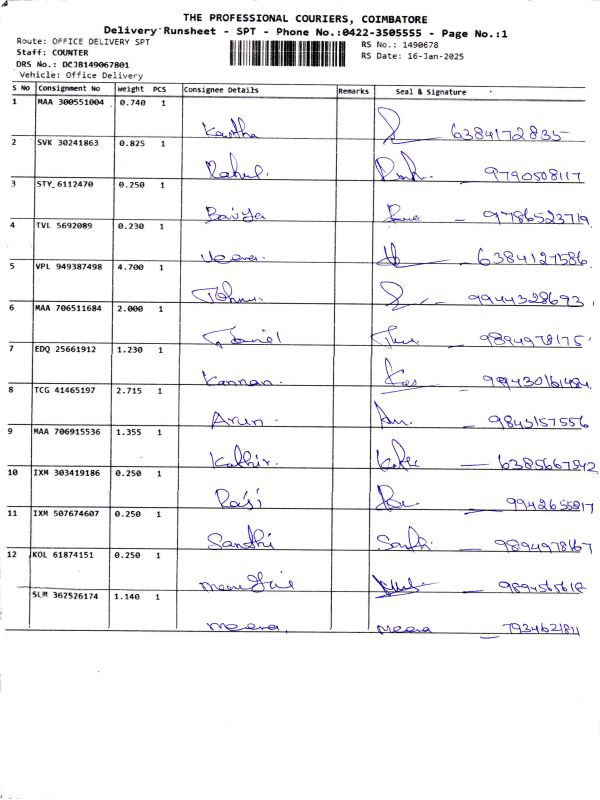 THE PROFESSIONAL COURIERS, COIMBATORE
Delivery Runsheet - SPT - Phone No.:0422-3505555 - Page No.:1
Route: OFFICE DELIVERY SPT
RS No.: 1490678
Staff: COUNTER
RS Date: 16-Jan-2025
DRS No.: DCJB149067801
Vehicle: Office Delivery
S No Consignment No Weight PCS Consignee Details Remarks Seal & Signature
1 MAA 300551004 0.740 1
Kavtha 6384172835
2 SVK 30241863 0.825 1
Rahul. 9790508117
3 STY 6112470 0.250 1
9786523719
4 TVL 5692089 0.230 1
Veera. 6384127586
5 VPL 949387498 4.700 1
9944328693
6 MAA 706511684 2.000 1
9894978175
7 EDQ 25661912 1.230 1
Kannan.
8 TCG 41465197 2.715 1
Arun. 9843157556
9 MAA 706915536 1.355 1
Kathir. 6385667842
10 IXM 303419186 0.250 1
Raji 9942655817
11 IXM 507674607 0.250 1
Sandhi 9894978167
12 KOL 61874151 0.250 1
SLM 362526174 1.140 1
meera. Meera 7934621811